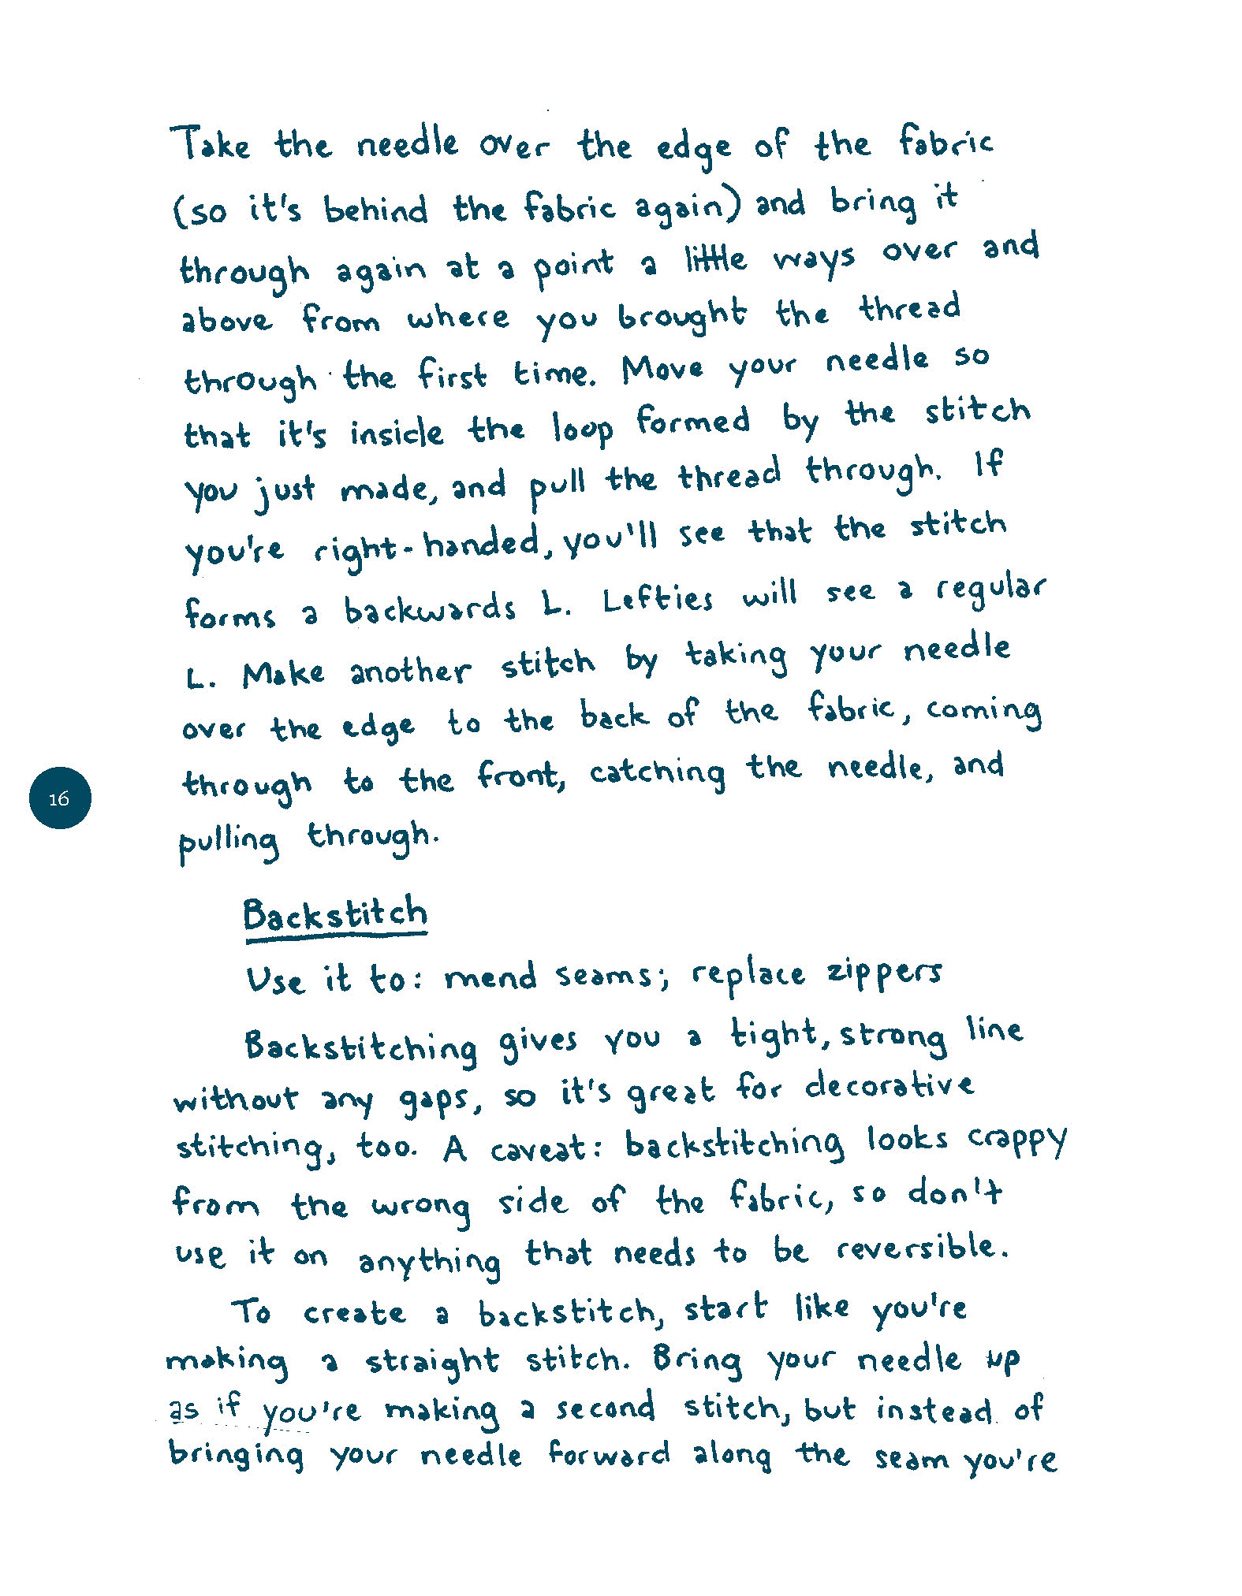 Take the needle over the edge of the fabric
(so it's behind the fabric again) and bring it
through again at a point a little ways over and
above from where you brought the thread
through the first time. Move your needle so
that it's inside the loop formed by the stitch
you just made, and pull the thread through. If
you're right-handed, you'll see that the stitch
forms a backwards L. Lefties will see a regular
L. Make another stitch by taking your needle
over the edge to the back of the fabric, coming
through to the front, catching the needle, and
16
pulling through.
Backstitch
Use it to: mend seams; replace zippers
Backstitching gives you a tight, strong line
without any gaps, so it's great for decorative
stitching, too. A caveat: backstitching looks crappy
from the wrong side of the fabric, so don't
use it on anything that needs to be reversible.
To create a backstitch, start like you're
making a straight stitch. Bring your needle up
as if you're making a second stitch, but instead of
bringing your needle forward along the seam you're